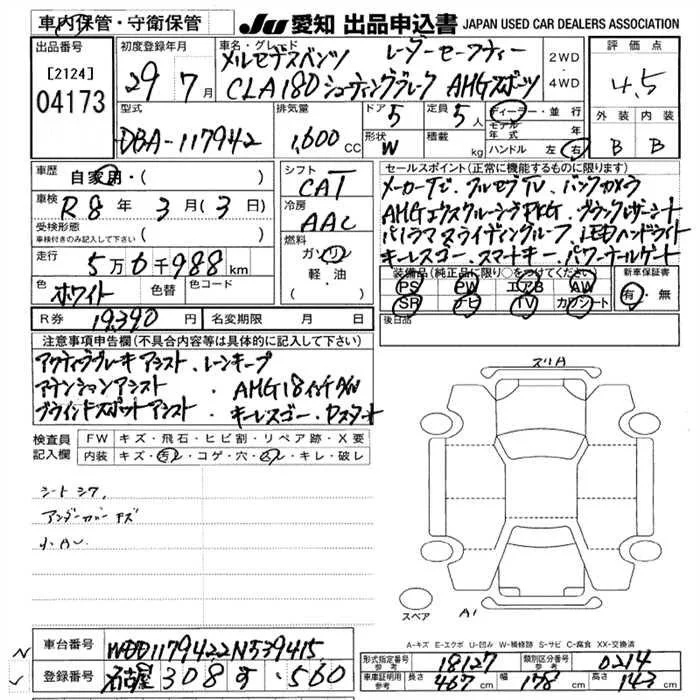 車内保管・守衛保管
JU 愛知 出品申込書 JAPAN USED CAR DEALERS ASSOCIATION
出品番号
[2124]
04173
初度登録年月
29年7月
車名・グレード
メルセデスベンツ レーダーセーフティー
CLA180 シューティングブレーク AMGスポーツ
2WD
・
4WD
評価点
4.5
外装 内装
B B
型式
DBA-117942
排気量
1,600 CC
ドア 5
定員 5人
形状 W
積載 kg
ディーラー・並行
モデル年式 年
ハンドル 左・右
車歴
自家用・( )
車検
R8年3月(3日)
受検形態
車検付きのみ記入して下さい
走行
5万6千988km
色
ホワイト
色替
色コード
シフト
CAT
冷房
AAC
燃料
ガソリン
軽・油
・( )
R券 19,390円
名変期限 月 日
セールスポイント(正常に機能するものに限ります)
メーカーナビ・フルセグTV・バックカメラ
AMGエクスクルーシブPKG・ブラックレザーシート
パノラマスライディングルーフ・LEDヘッドライト
キーレスゴー・スマートキー・パワーテールゲート
装備品(純正品に限り○をつけてください)
PS PW エアB AW
SR ナビ TV カワシート
新車保証書
有・無
後日品
注意事項申告欄(不具合内容等は具体的に記入して下さい)
アクティブブレーキアシスト・レーンキープ
アテンションアシスト・AMG18インチAW
ブラインドスポットアシスト・キーレスゴー・
検査員記入欄
FW キズ・飛石・ヒビ割・リペア跡・X要
内装 キズ・汚レ・コゲ・穴・スレ・キレ・破レ
シートシワ,
アンダーカバーキズ
小A〜
スリA
A1
スペア
A-キズ E-エクボ U-凹み W-補修跡 S-サビ C-腐食 XX-交換済
車台番号 WDD1179422N539415
登録番号 名古屋 308 す・560
形式指定番号 参考 18127
類別区分番号 参考 0214
車庫証明用 参考 長さ 467cm 幅 178cm 高さ 143cm